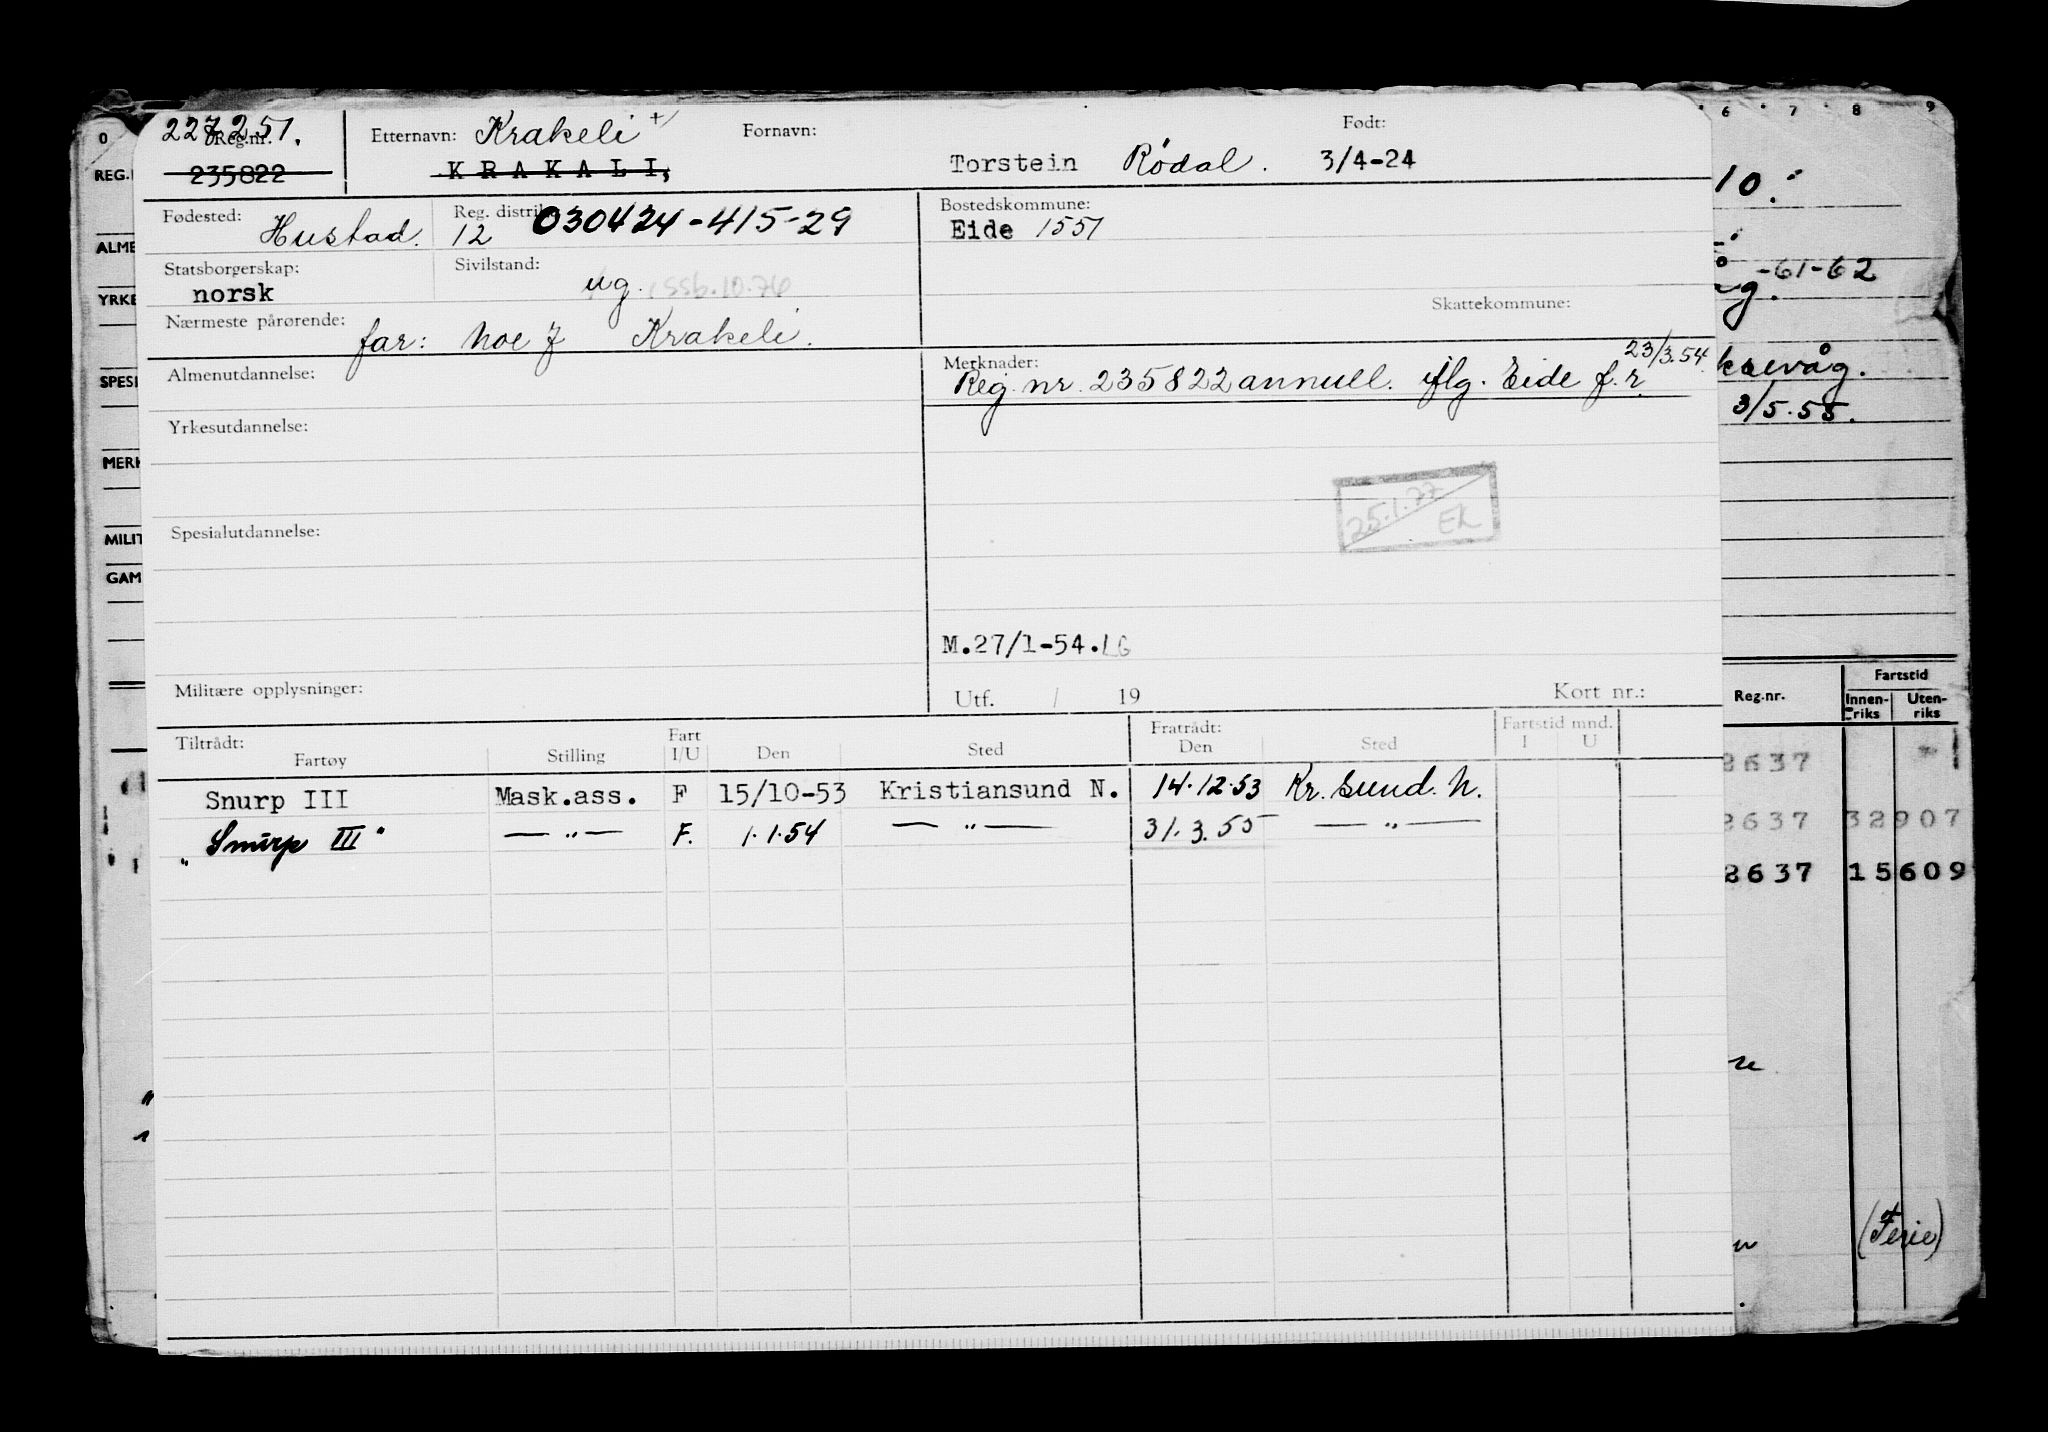 227251.
Reg.nr.
235822
Etternavn: Krakeli +/
KRAKALI,
Fornavn:
Torstein Rödal.
Født:
3/4-24
Fødested: Hustad.
Reg. distrikt:
12 030424-415-29
Bostedskommune:
Eide 1551
Statsborgerskap:
norsk
Sivilstand: ug. ssb.10.76
Skattekommune:
Nærmeste pårørende: far: Noe J Krakeli.
Almenutdannelse:
Merknader:
Reg. nr. 235822 annull. iflg. Eide f.r. 23/3.54.
Yrkesutdannelse:
25.1.77
EK
Spesialutdannelse:
M.27/1-54. LG
Militære opplysninger:
Utf. / 19
Kort nr.:
Tiltrådt:
Fartøy
Stilling
Fart
I/U
Den
Sted
Fratrådt:
Den
Sted
Fartstid mnd.
I U
Snurp III Mask.ass. F 15/10-53 Kristiansund N. 14.12.53 Kr.sund.N.
"Snurp III" — " — F. 1.1.54 — " — 31.3.55 — " —
0
REG.
ALME
YRKE
SPESI
MERK
MILIT
GAM
6 7 8 9
10.
-61-62
3/5.55.
Reg.nr.
Fartstid
Innen-
riks
Uten-
riks
2637
2637 32907
2637 15609
(Ferie)